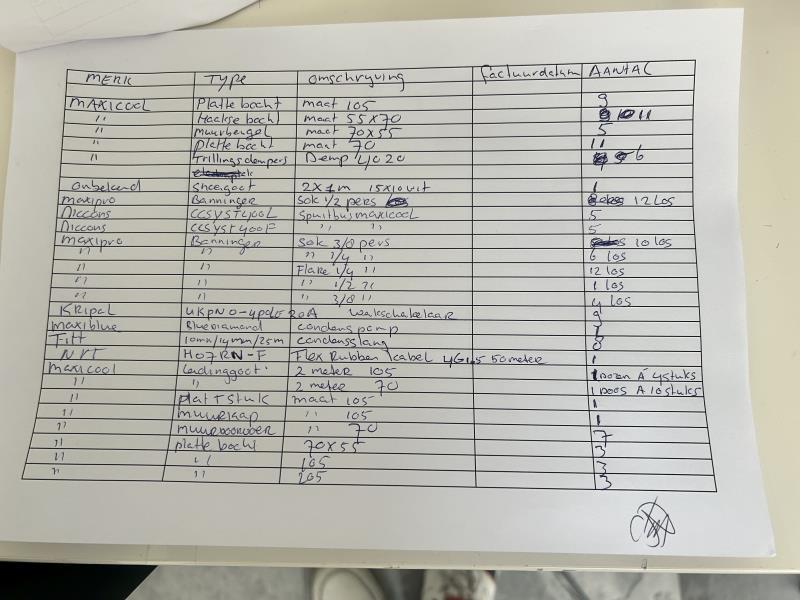 MERK TYPE omschryving factuurdatum AANTAL
MAXICOOL Platte bocht maat 105 9
" Haakse bocht maat 55x70 11
" muurbeugel maat 70x55 5
" platte bocht maat 70 11
" Trillingsdempers Demp 4020 6
onbekend 2x1m 15x10 uit 1
maxipro Banninger Sok 1/2 pers 12 los
Diccons CCSYST400L Spuitbus maxicool 5
Diccons CCSYST400F " " 5
maxipro Banninger Sok 3/8 pers 10 los
" " " 1/4 " 6 los
" " Flare 1/4 " 12 los
" " " 1/2 " 1 los
" " " 3/8 " 4 los
Kripal UKPNO-4polo 20A wekschakelaar 9
maxiblue Bluediamond condenspomp
Titt 10mm/14mm/25m condensslang 8
NVT H07RN-F Flex Rubben kabel 4G1,5 50meter 1
maxicool Leidinggoot 2 meter 105 1 Doos A 4stuks
" " 2 meter 70 1 Doos A 10stuks
" plat T stuk maat 105 1
" muurkap " 105 1
" muurdoorvoer " 70 7
" platte bocht 70x55 3
" " 105 3
" " 205 3